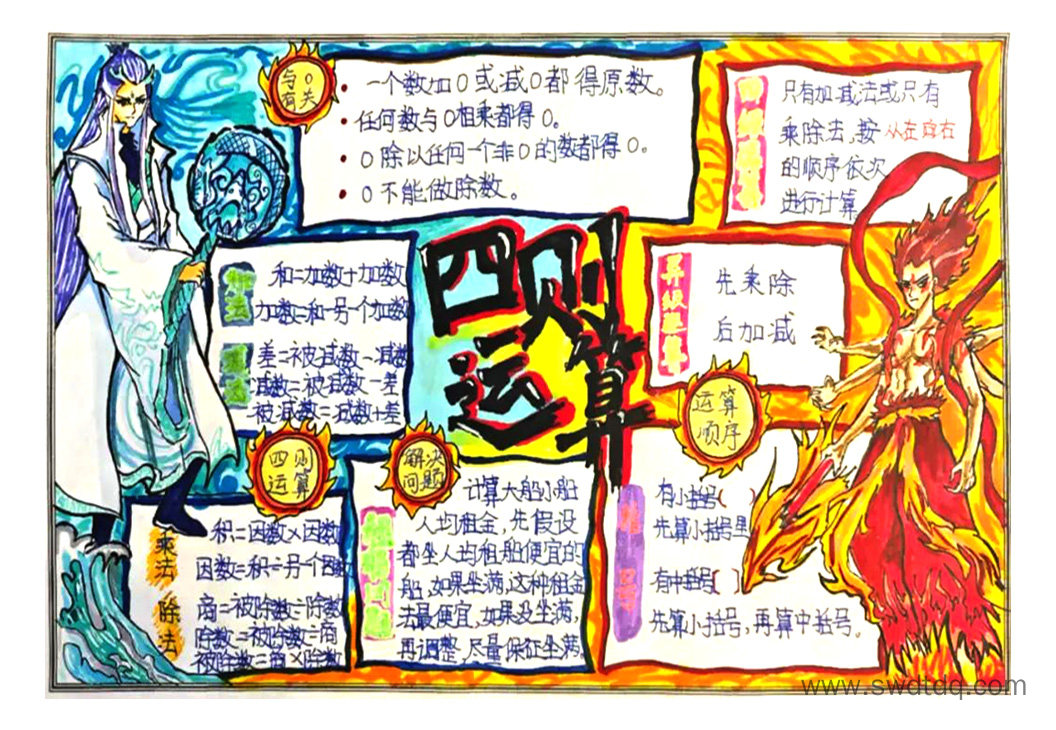 与0
有关
一个数加0或减0都得原数。
任何数与0相乘都得0。
0除以任何一个非0的数都得0。
0不能做除数。
只有加减法或只有
乘除法,按从左向右
的顺序依次
进行计算
四则
运算
和=加数+加数
加数=和-另一个加数
差=被减数-减数
减数=被减数-差
被减数=减数+差
异级运算
先乘除
后加减
运算
顺序
四则
运算
乘法
积=因数×因数
因数=积÷另一个因数
除法
商=被除数÷除数
除数=被除数÷商
被除数=商×除数
解决
问题
计算大船小船
人均租金,先假设
都坐人均租船便宜的
船,如果坐满,这种租金
去最便宜,如果没坐满,
再调整,尽量保证坐满。
有小括号( )
先算小括号里
有中括号[ ]
先算小括号,再算中括号。
www.swdtdq.com